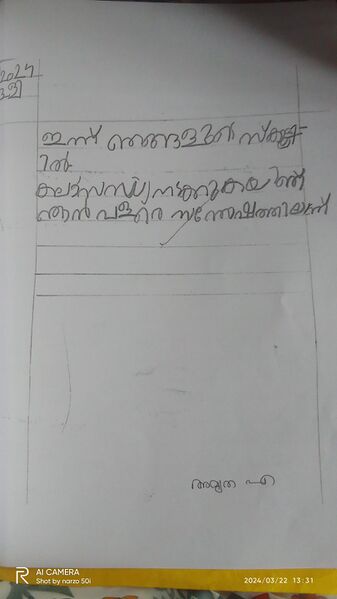 2024
ഇന്ന് ഞങ്ങളുടെ സ്കൂളി-
ൽ
കലാസന്ധ്യ നടക്കുകയാണ്
ഞാൻ വളരെ സന്തോഷത്തിലാണ്
അമൃത എ
AI CAMERA
Shot by narzo 50i
2024/03/22 13:31